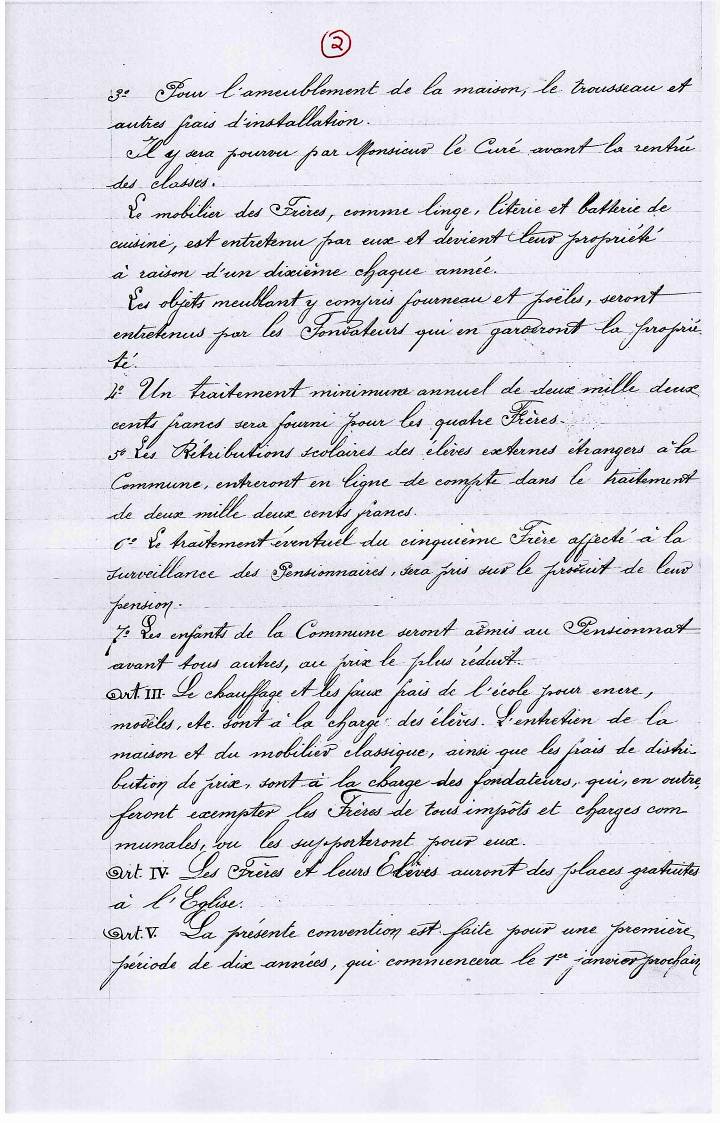 2
3º Pour l'ameublement de la maison, le trousseau et
autres frais d'installation.
Il y sera pourvu par Monsieur le Curé avant la rentrée
des classes.
Le mobilier des Frères, comme linge, literie et batterie de
cuisine, est entretenu par eux et devient leur propriété
à raison d'un dixième chaque année.
Les objets meublant y compris fourneau et poëles, seront
entretenus par les Fondateurs qui en garderont la proprié-
té.
4º Un traitement minimum annuel de deux mille deux
cents francs sera fourni pour les quatre Frères.
5º Les Rétributions scolaires des élèves externes étrangers à la
Commune, entreront en ligne de compte dans le traitement
de deux mille deux cents francs.
6º Le traitement éventuel du cinquième Frère affecté à la
surveillance des Pensionnaires, sera pris sur le produit de leur
pension.
7º Les enfants de la Commune seront admis au Pensionnat
avant tous autres, au prix le plus réduit.
Art III. Le chauffage et les faux frais de l'école pour encre,
modèles, etc. sont à la charge des élèves. L'entretien de la
maison et du mobilier classique, ainsi que les frais de distri-
bution de prix, sont à la charge des fondateurs, qui, en outre,
feront exempter les Frères de tous impôts et charges com-
munales, ou les supporteront pour eux.
Art IV. Les Frères et leurs Elèves auront des places gratuites
à l'Eglise.
Art. V. La présente convention est faite pour une première
période de dix années, qui commencera le 1er janvier prochain